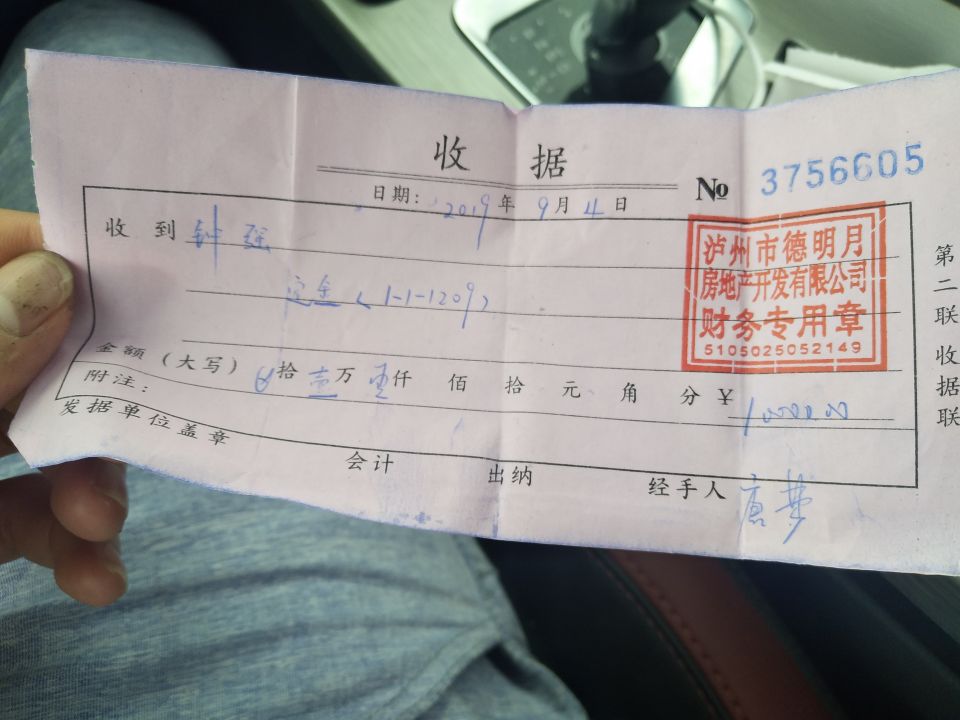 收据
№ 3756605
日期: 2019年9月4日
收到 钟强
定金(1-1-1209)
泸州市德明月
房地产开发有限公司
财务专用章
5105025052149
金额(大写) 拾壹万 仟佰拾元角分¥ 10000.00
附注:
发据单位盖章 会计 出纳 经手人 唐梦
第二联 收据联